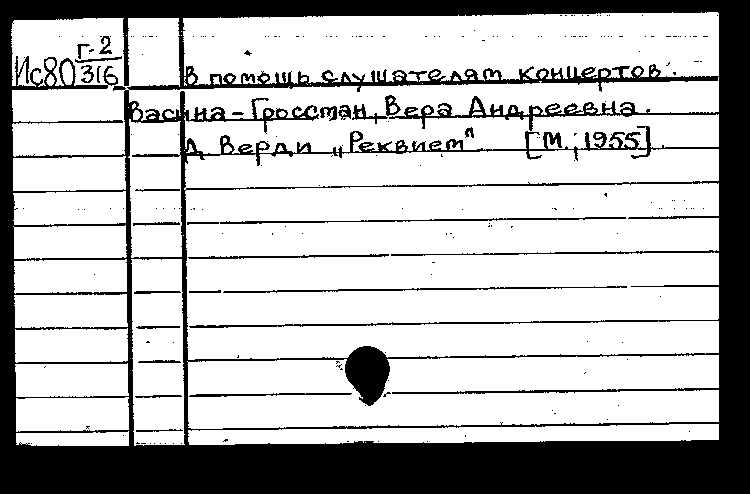 Г-2
Ис80 316
В помощь слушателям концертов.
Васина-Гроссман, Вера Андреевна.
Д. Верди „Реквием" [М., 1955].